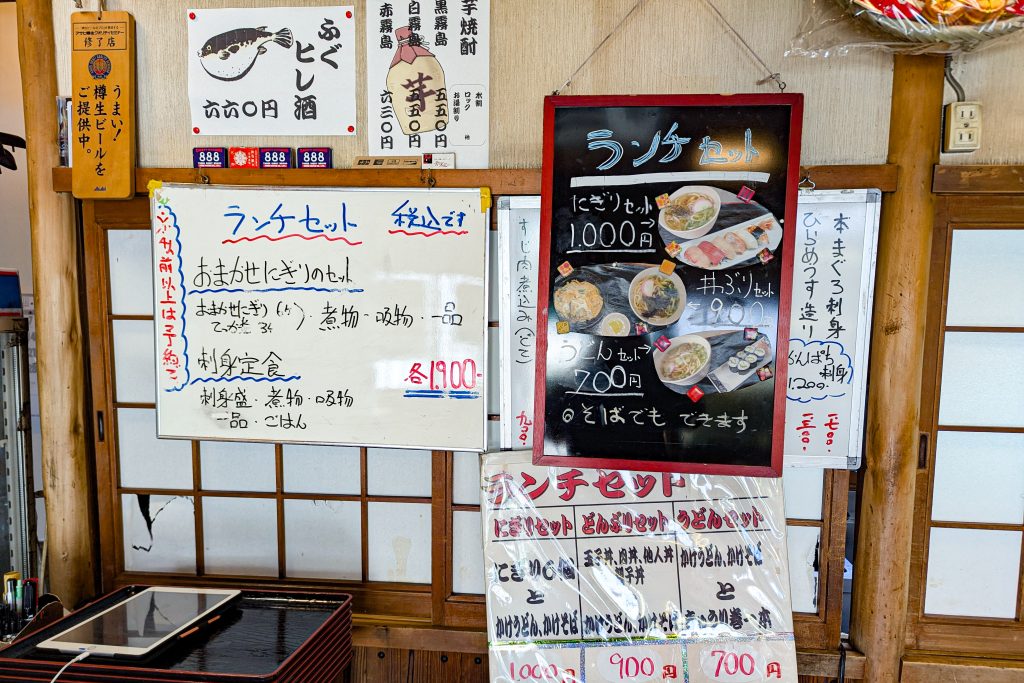 修了店
うまい!
樽生ビールを
ご提供中。
Asahi
ふぐ
ヒレ酒
六六〇円
芋焼酎
黒霧島 五五〇円
白霧島 五五〇円
赤霧島 六三〇円
芋
水割
ロック
お湯割り
888
888
888
ランチセット 税込です
おまかせにぎりのセット
おまかせにぎり
煮物・吸物・一品
刺身定食
各1,900-
刺身盛・煮物・吸物
一品・ごはん
すじ肉煮込み
九〇〇
ランチセット
にぎりセット→
1,000円
丼ぶりセット
←900円
うどんセット→
700円
◎そばでもできます
本まぐろ刺身
ひらめうす造り
かんぱち
刺身
1,200-
ランチセット
にぎりセット どんぶりセット うどんセット
にぎり6個
と
かけうどん、かけそば
玉子丼、肉丼、他人丼
親子丼
と
かけうどん、かけそば
かけうどん、かけそば
と
きゅうり巻一本
1,000円 900円 700円